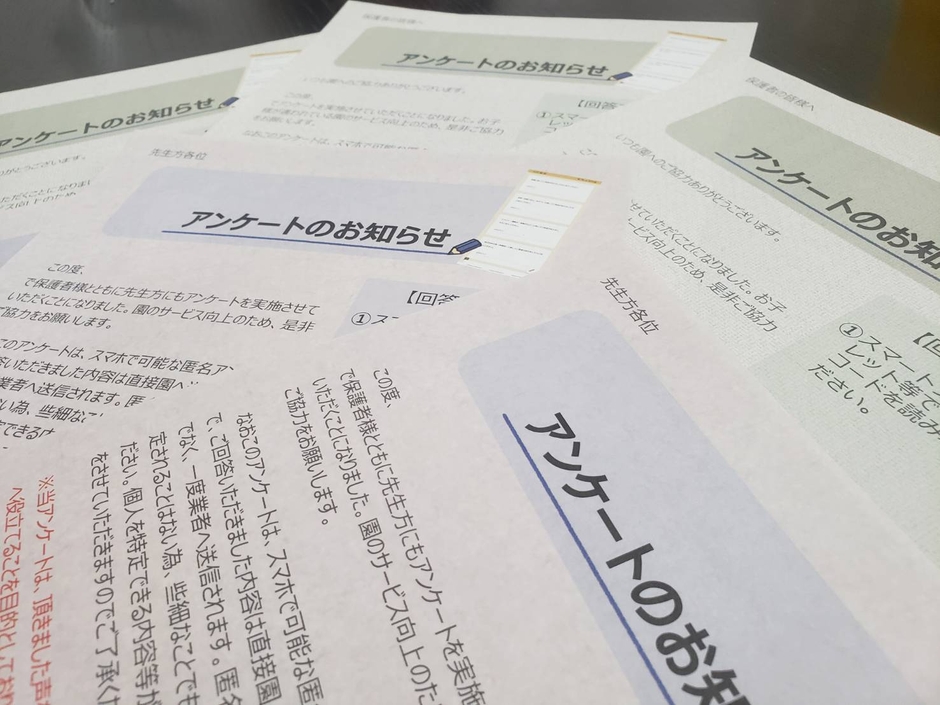 保護者の皆様へ
アンケートのお知らせ
いつも園へのご協力ありがとうございます。
この度、
でアンケートを実施させていただくことになりました。お子
様が通われている園のサービス向上のため、是非ご協力
をお願いします。
なおこのアンケートは、スマホで可能な
【回答
①スマー
レット
アンケートのお知らせ
りがとうございます。
ただくことになりま
保護者の皆様へ
アンケートのお知
いつも園へのご協力ありがとうございます。
せていただくことになりました。お子
ービス向上のため、是非ご協力
【回
①スマート
レット等で
コードを読み
ださい。
先生方各位
アンケートのお知らせ
この度、
で保護者様とともに先生方にもアンケートを実施させて
いただくことになりました。園のサービス向上のため、是非
ご協力をお願いします。
このアンケートは、スマホで可能な匿名ア
答いただきました内容は直接園へ
業者へ送信されます。匿
い為、些細な
できる
【回答
①ス
先生方各位
アンケートのお知
この度、
で保護者様とともに先生方にもアンケートを実施
いただくことになりました。園のサービス向上のた
ご協力をお願いします。
なおこのアンケートは、スマホで可能な匿
で、ご回答いただきました内容は直接園
でなく、一度業者へ送信されます。匿名
定されることはない為、些細なことでも
ださい。個人を特定できる内容等が
をさせていただきますのでご了承くた
※当アンケートは、頂きました声
へ役立てることを目的としており